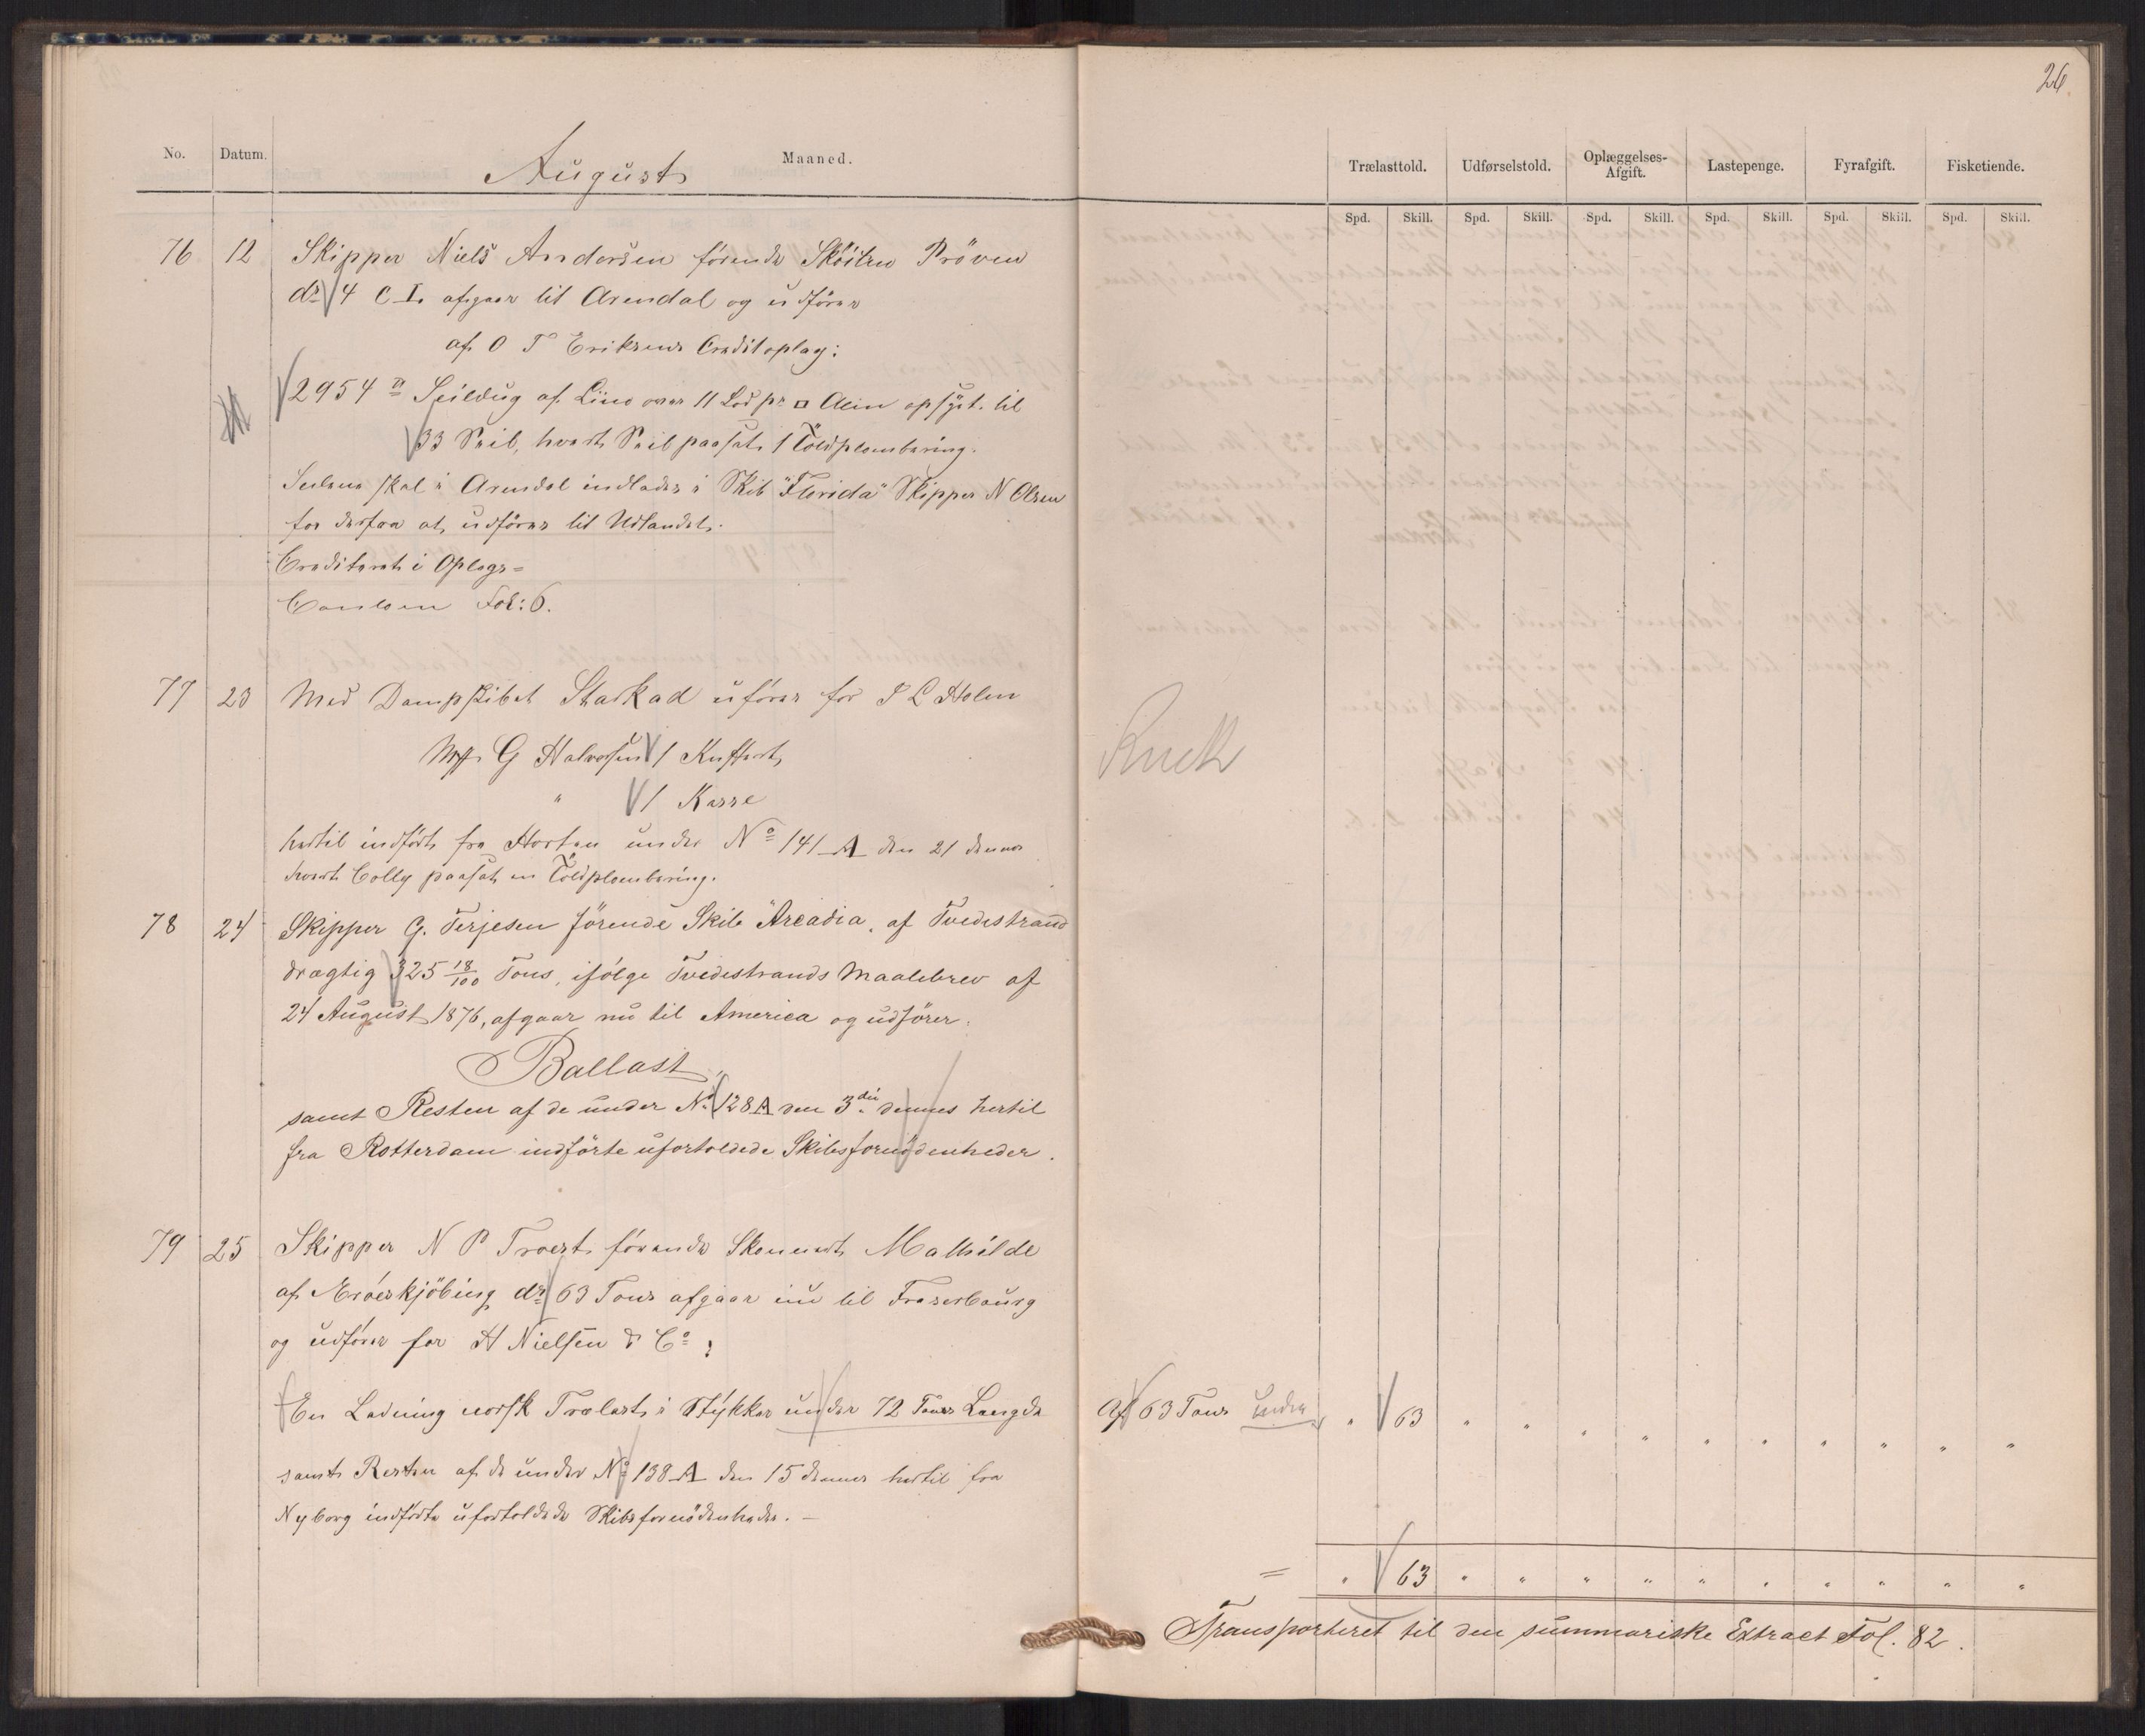 26
No. Datum. August Maaned.
Trælasttold. Udførselstold. Oplæggelses-Afgift. Lastepenge. Fyrafgift. Fisketiende.
Spd. Skill. Spd. Skill. Spd. Skill. Spd. Skill. Spd. Skill. Spd. Skill.
76 12 Skipper Niels Andersen førende Skøiten Prøven
dr 4 C L. afgaar til Arendal og udfører
af O T Eriksens Creditoplag:
2954 ℔ Seildug af Liin over 11 Lod pr □ Alen opsyet til
33 Seil, hvert Seil paasat 1 Toldplombering.
Seilene skal i Arendal indlades i Skib "Florida" Skipper N Olsen
for derfra at udføres til Udlandet.
Crediteret i Oplags=
Contoen Fol: 6.
77 23 Med Dampskibet Starkad uføres for P C Holm
Mrk G Halvorsen 1 Kuffert,
" 1 Kasse
hertil indført fra Horten under No 141 A den 21 dennes
hvert Colly paasat en Toldplombering.
Kuck
78 24 Skipper G. Terjesen førende Skib "Arcadia" af Tvedestrand
drægtig 325 18/100 Tons, ifølge Tvedestrands Maalebrev af
24 August 1876, afgaar nu til America og udfører:
Ballast,
samt Resten af de under No 128 A den 3die dennes hertil
fra Rotterdam indførte ufortoldede Skibsfornødenheder.
79 25 Skipper N P Troest førende Skonnert Mathilde
af Ærøeskjøbing dr 63 Tons afgaar nu til Fraserbourg
og udfører for H Nielsen & Co:
En Ladning norsk Trælast i Stykker under 72 Tons Længde Af 63 Tons under " 63 " " " " " " " " " "
samt Resten af de under No 138 A den 15 dennes hertil fra
Nyborg indførte ufortoldede Skibsfornødenheder. —
= " 63 " " " " " " " " " "
Transporteret til den summariske Extract Fol. 82.